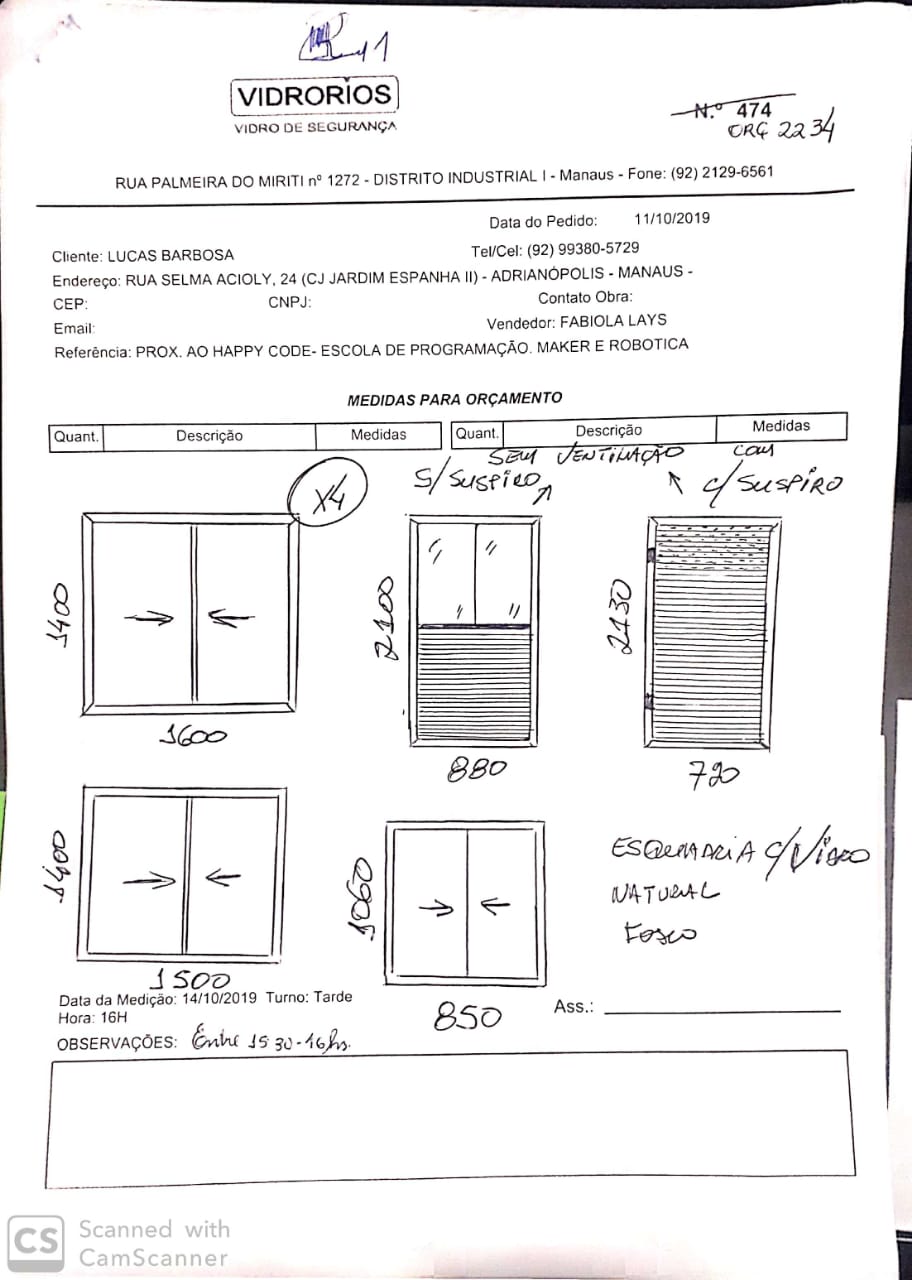 VIDRORIOS
VIDRO DE SEGURANÇA
N.º 474
ORÇ 2234
RUA PALMEIRA DO MIRITI nº 1272 - DISTRITO INDUSTRIAL I - Manaus - Fone: (92) 2129-6561
Data do Pedido: 11/10/2019
Cliente: LUCAS BARBOSA Tel/Cel: (92) 99380-5729
Endereço: RUA SELMA ACIOLY, 24 (CJ JARDIM ESPANHA II) - ADRIANÓPOLIS - MANAUS -
CEP: CNPJ: Contato Obra:
Email: Vendedor: FABIOLA LAYS
Referência: PROX. AO HAPPY CODE- ESCOLA DE PROGRAMAÇÃO. MAKER E ROBOTICA
MEDIDAS PARA ORÇAMENTO
Quant. Descrição Medidas Quant. Descrição Medidas
SEM VENTILAÇÃO COM
S/SUSPIRO C/SUSPIRO
X4
1400 2100 2130
1600 880 720
1400 1060
ESQUADRIA C/VIDRO
NATURAL
FOSCO
1500 850
Data da Medição: 14/10/2019 Turno: Tarde
Hora: 16H
Ass.:
OBSERVAÇÕES: Entre 15 30-16hs.
CS Scanned with
CamScanner